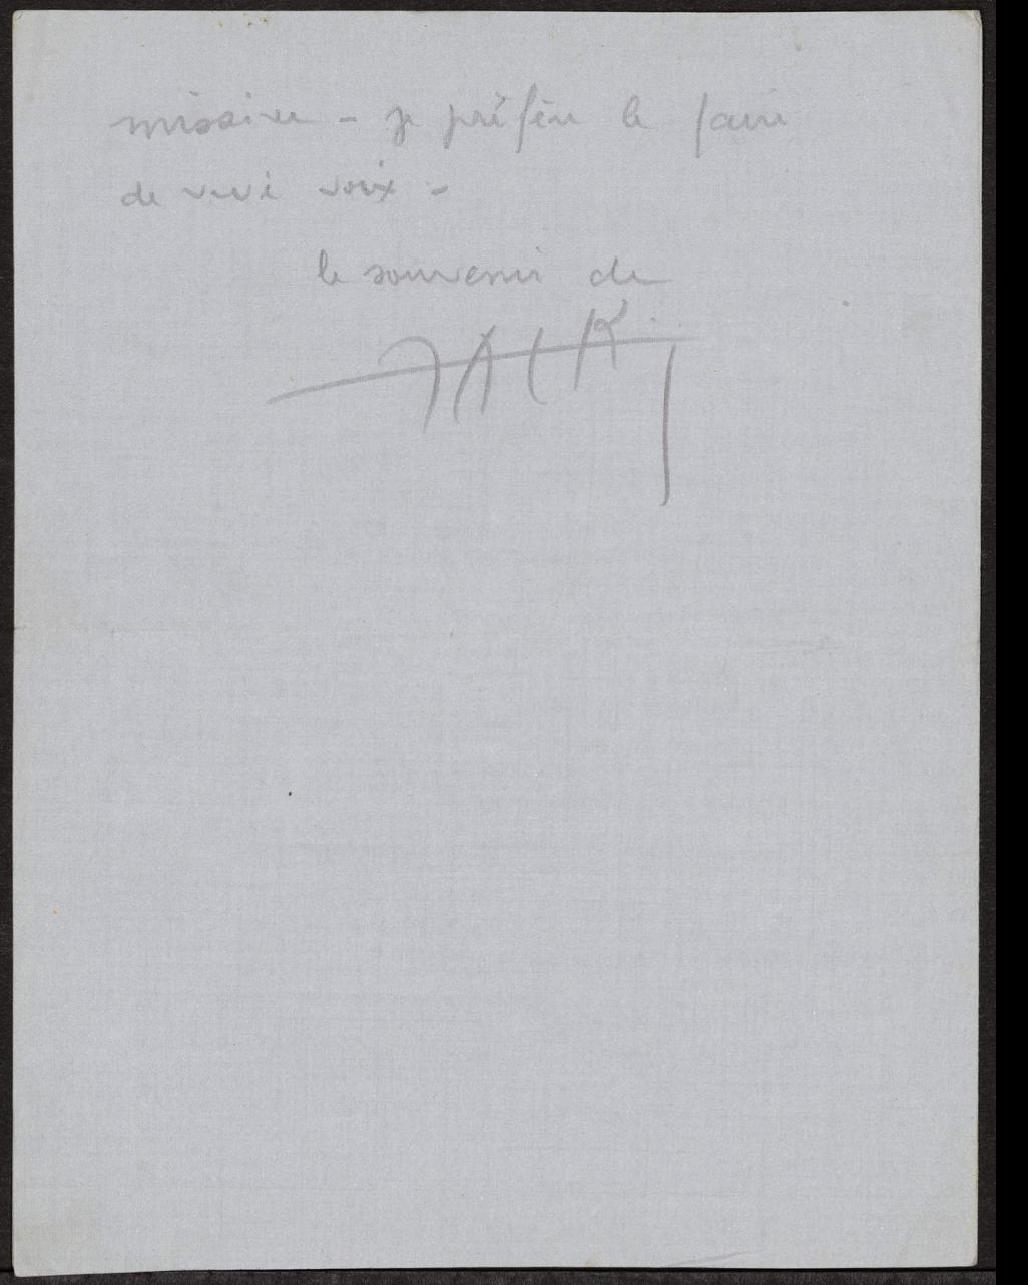 missive - je préfère le faire
de vive voix -
le souvenir de